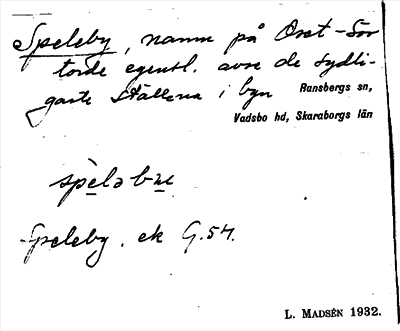 Speleby, namn på Öret-Sör
torde egentl. avse de sydli-
gaste ställena i byn Ransbergs sn,
Vadsbo hd, Skaraborgs län
spèləbʉe
Speleby. ek G.54.
L. MADSÉN 1932.